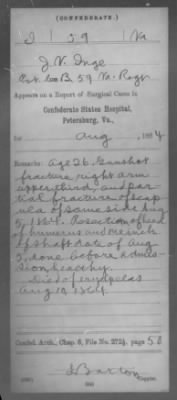 (CONFEDERATE.)
I | 59 | Va
J. V. Inge
Pvt. Co B. 59 Va. Regt
Appears on a Report of Surgical Cases in
Confederate States Hospital,
Petersburg, Va.,
for Aug, 1864
Remarks: Age 26. Gunshot
fracture, right arm
upper third, and par
tial fracture of scap
ula of same side Aug
5, 1864. Resection of head
of humerus and
of shaft date of Aug
5, done before admis-
sion, healthy.
Died of erysipelas
Aug 19, 1864.
Confed. Arch., Chap. 6, File No. 272½, page 58
Barton
Copyist.